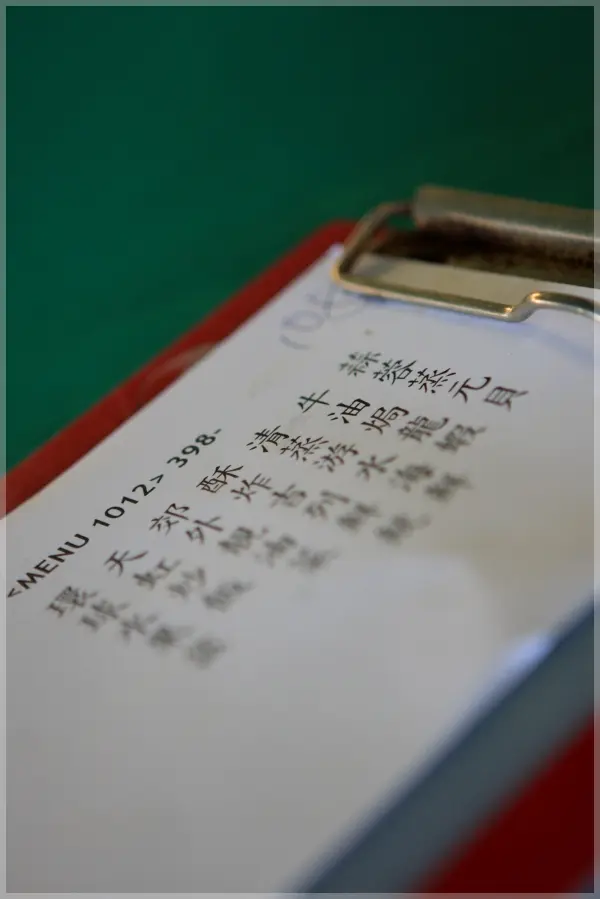 <MENU 1012> 398-
蒜蓉蒸元貝
牛油焗龍蝦
清蒸游水海鮮
酥炸吉列鮮
郊外油菜
天虹炒飯
環球水果